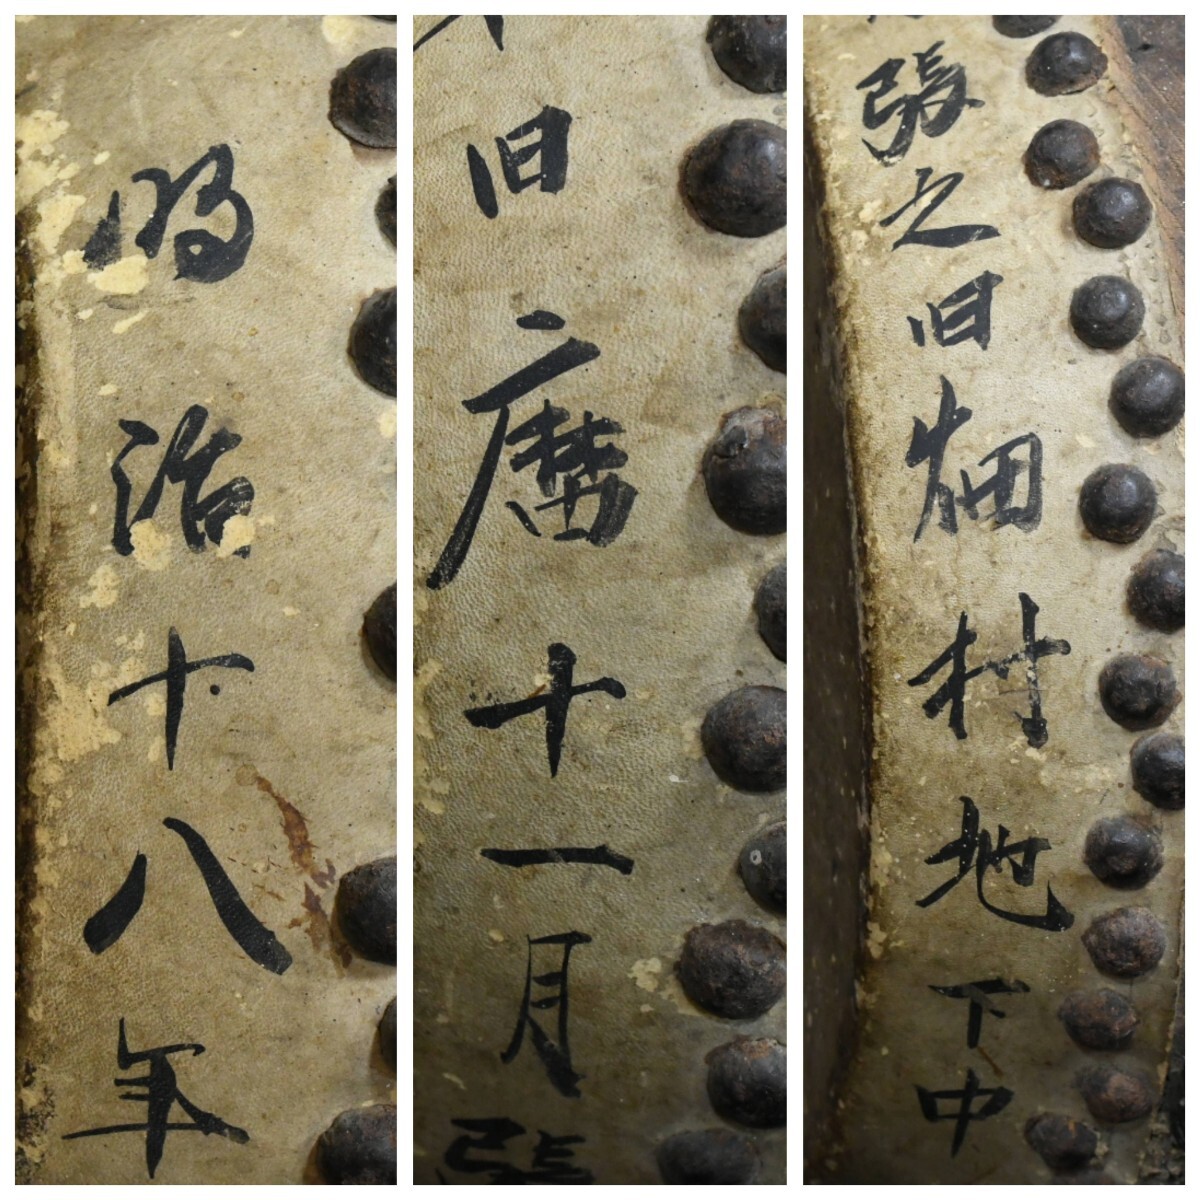 明治十八年
旧暦十一月張
張之旧畑村地下中